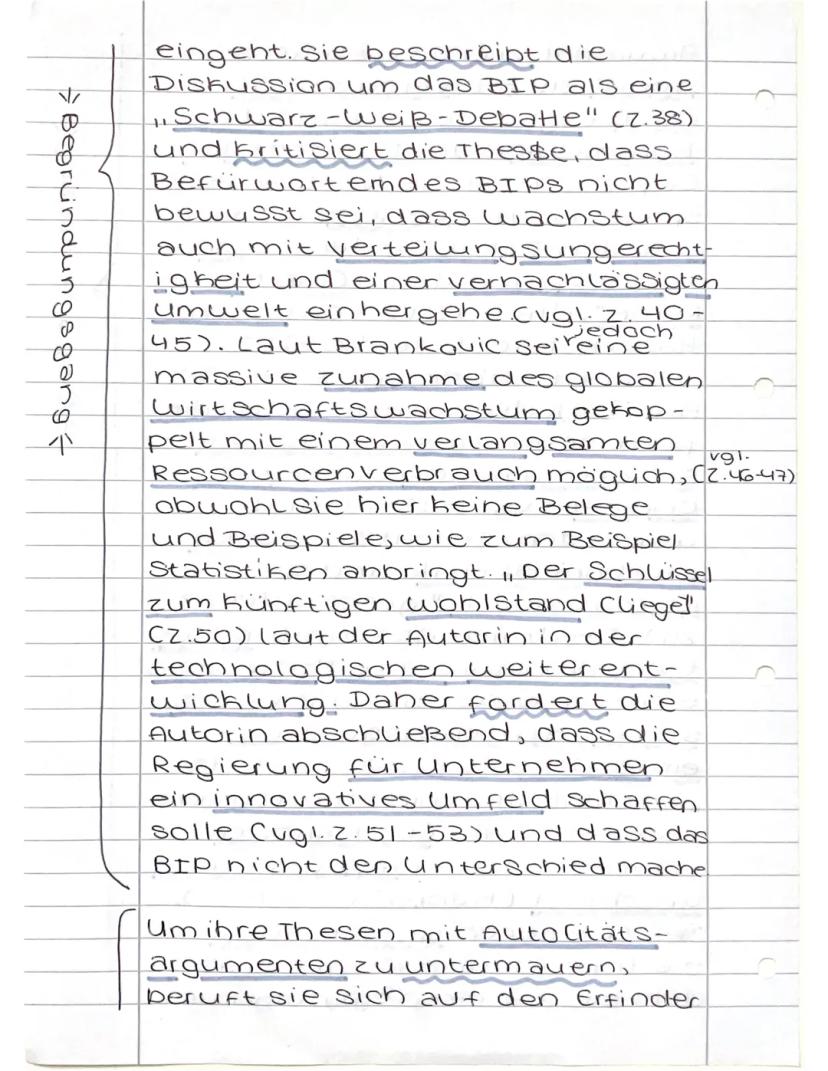 eingeht. Sie beschreibt die
Diskussion um das BIP als eine
„Schwarz-Weiß-Debatte" (Z.38)
und kritisiert die These, dass
Befürworterndes BIPs nicht
bewusst sei, dass Wachstum
auch mit Verteilungsungerecht-
igkeit und einer vernachlässigten
Umwelt einhergehe (vgl. Z. 40-
45). Laut Brankovic sei jedoch eine
massive Zunahme des globalen
Wirtschaftswachstum gekop-
pelt mit einem verlangsamten
Ressourcenverbrauch möglich, (vgl. Z.46-47)
obwohl sie hier keine Belege
und Beispiele, wie zum Beispiel
Statistiken anbringt. „Der Schlüssel
zum künftigen Wohlstand (liege)"
(Z.50) laut der Autorin in der
technologischen Weiterent-
wicklung. Daher fordert die
Autorin abschließend, dass die
Regierung für Unternehmen
ein innovatives Umfeld schaffen
solle (vgl. Z. 51-53) und dass das
BIP nicht den Unterschied mache
Um ihre Thesen mit Autoritäts-
argumenten zu untermauern,
beruft sie sich auf den Erfinder
→ Begründungsgang →